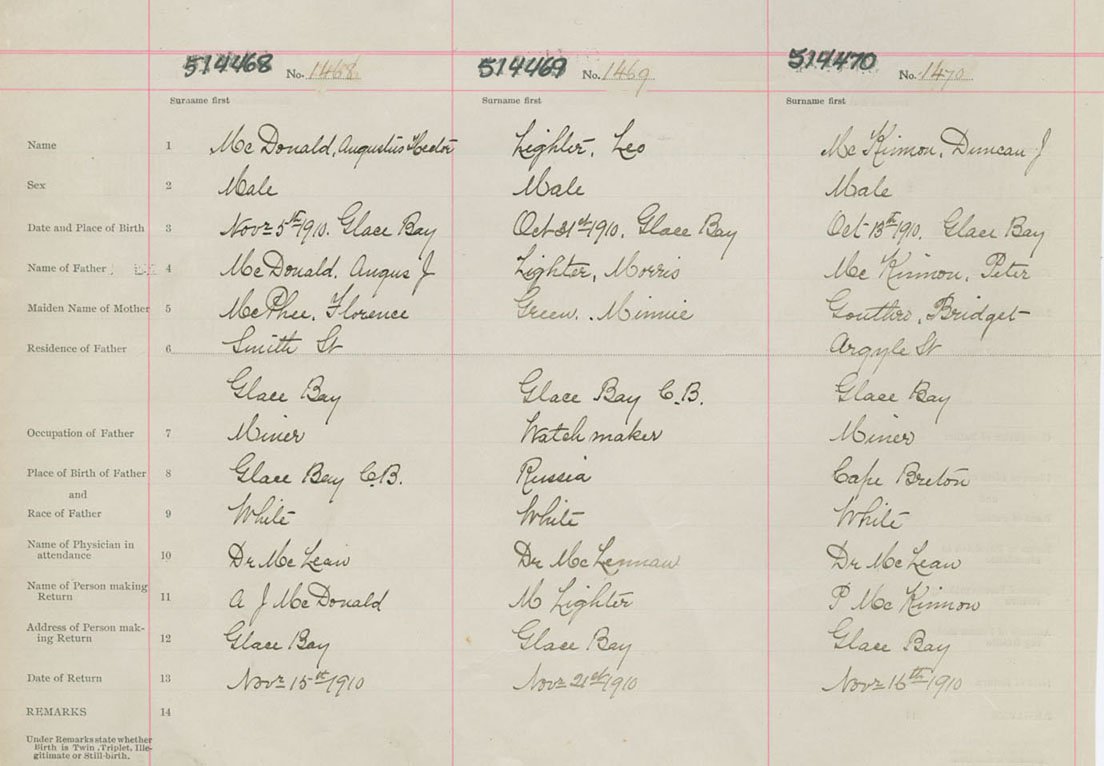 514468 No. 1468 514469 No. 1469 514470 No. 1470
Surname first Surname first Surname first
Name 1 McDonald, Augustus Hector Lighter, Leo McKinnon, Duncan J
Sex 2 Male Male Male
Date and Place of Birth 3 Nov 5th 1910. Glace Bay Oct 31st 1910. Glace Bay Oct 13th 1910. Glace Bay
Name of Father 4 McDonald, Angus J Lighter, Morris McKinnon, Peter
Maiden Name of Mother 5 McPhee, Florence Green, Minnie Gouthro, Bridget
Residence of Father 6 Smith St Argyle St
Glace Bay Glace Bay C.B. Glace Bay
Occupation of Father 7 Miner Watchmaker Miner
Place of Birth of Father 8 Glace Bay C.B. Russia Cape Breton
and
Race of Father 9 White White White
Name of Physician in
attendance 10 Dr McLean Dr McLennan Dr McLean
Name of Person making
Return 11 A J McDonald M Lighter P McKinnon
Address of Person mak-
ing Return 12 Glace Bay Glace Bay Glace Bay
Date of Return 13 Nov 15th 1910 Nov 21st 1910 Nov 16th 1910
REMARKS 14
Under Remarks state whether
Birth is Twin, Triplet, Ille-
gitimate or Still-birth.